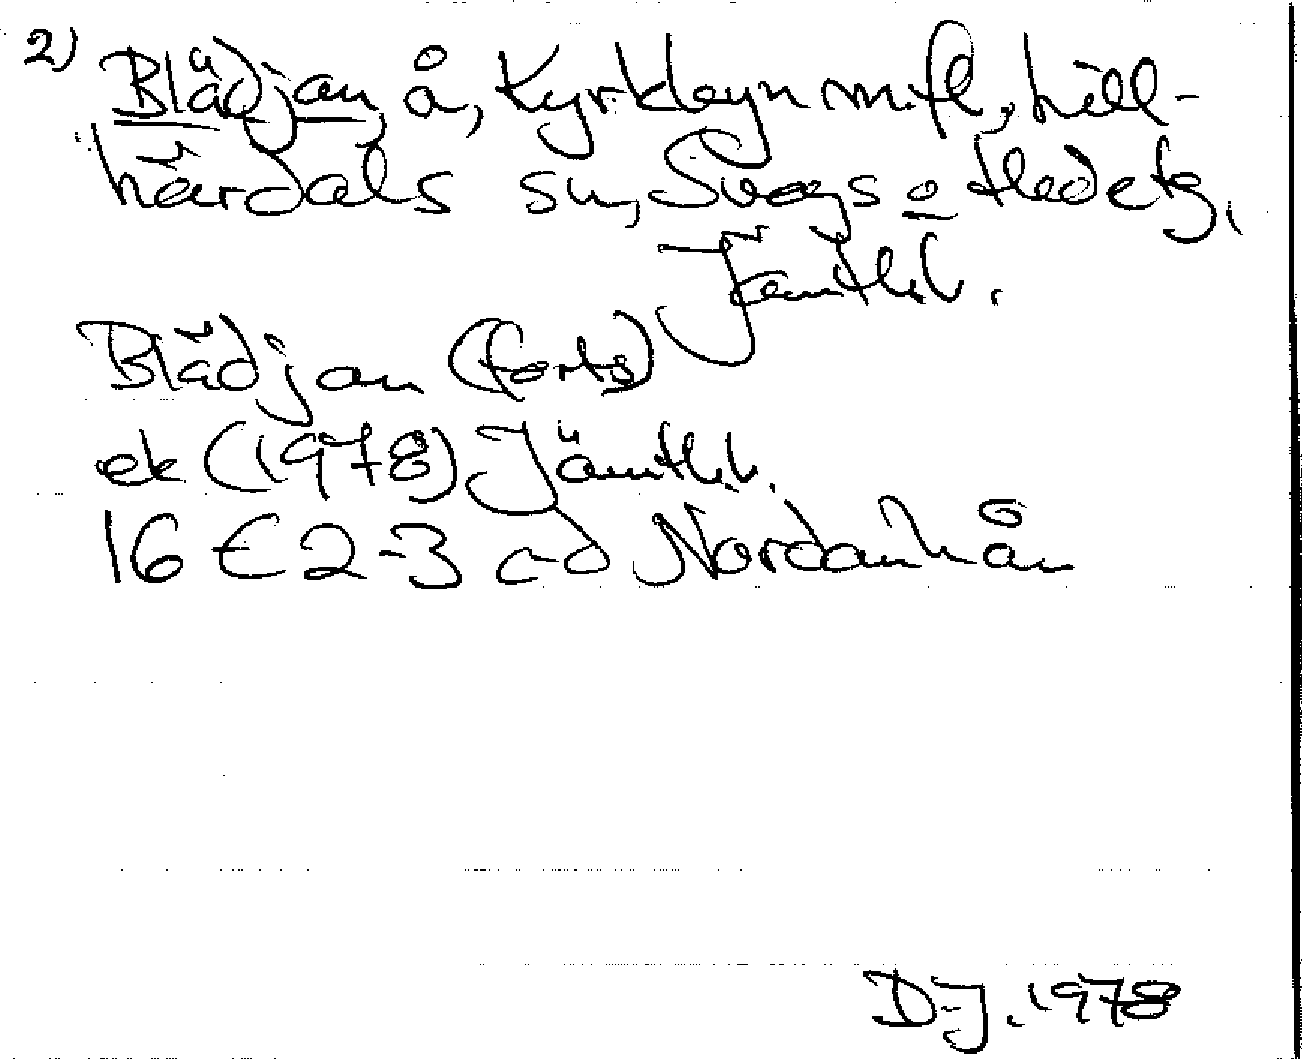 2) Blädjan, å, Kyrkbyn m.fl., Lill-
härdals sn, Svegs o Hede tg,
Jämtl.l.
Blädjan (forts)
ek (1978) Jämtl.l.
16 E 2-3 c-d Nordanhån
D-J. 1978